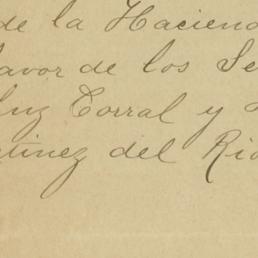 de la Hacien
avor de los Se
Luz Corral y
tinez del Rio